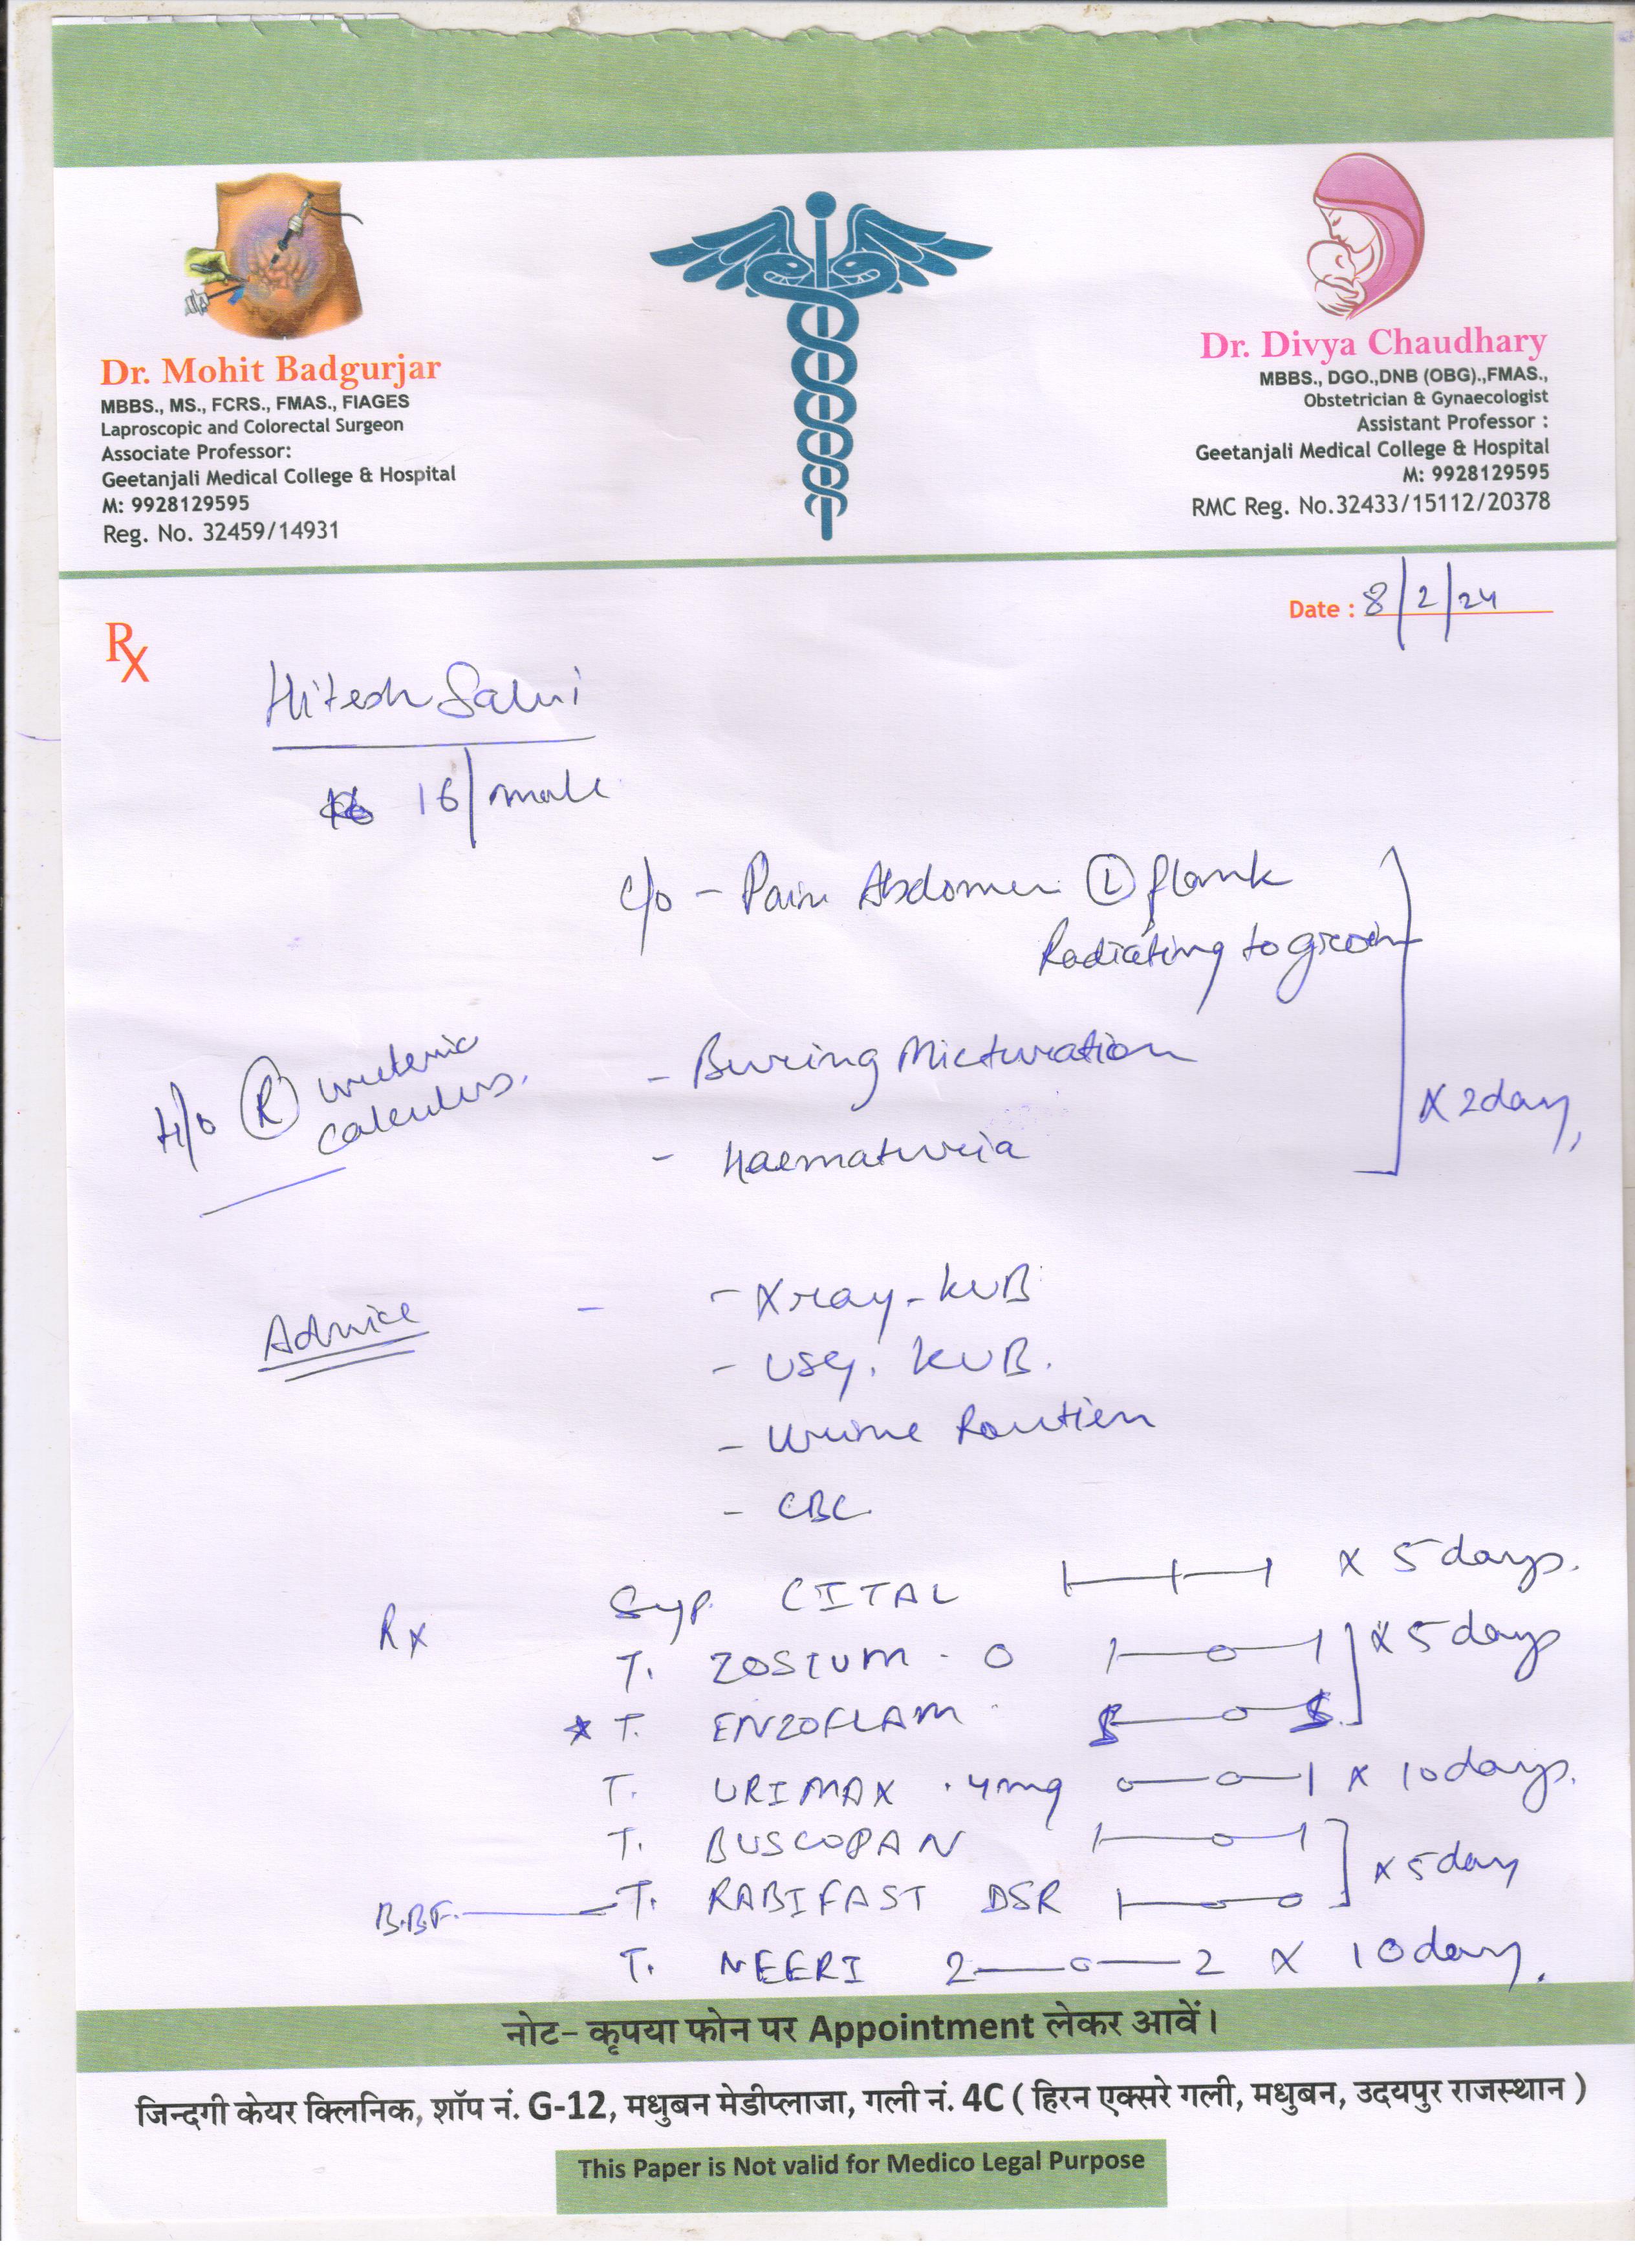 Dr. Mohit Badgurjar
MBBS., MS., FCRS., FMAS., FIAGES
Laproscopic and Colorectal Surgeon
Associate Professor:
Geetanjali Medical College & Hospital
M: 9928129595
Reg. No. 32459/14931
Dr. Divya Chaudhary
MBBS., DGO.,DNB (OBG).,FMAS.,
Obstetrician & Gynaecologist
Assistant Professor :
Geetanjali Medical College & Hospital
M: 9928129595
RMC Reg. No.32433/15112/20378
Date : 8/2/24
Rx
Hitesh
16/male
c/o - Pain Abdomen (L) flank
Radiating to groin
H/o (R) ureteric
calculus.
- Buring Micturation
- Haematuria
x 2day,
Advice - - Xray-KUB
- USG. KUB.
- Urine Routien
- CBC
Rx Syp. CITAL 1—1—1 x 5days.
T. ZOSTUM-O 1—0—1 x 5days
* T. ENZOFLAM —0—
T. URIMAX .4mg 0—0—1 x 10days.
T. BUSCOPAN 1—0—1 x 5day
B.B.F. — T. RABIFAST DSR 1—0—0
T. NEERI 2—0—2 x 10day.
नोट- कृपया फोन पर Appointment लेकर आवें।
जिन्दगी केयर क्लिनिक, शॉप नं. G-12, मधुबन मेडीप्लाजा, गली नं. 4C ( हिरन एक्सरे गली, मधुबन, उदयपुर राजस्थान )
This Paper is Not valid for Medico Legal Purpose